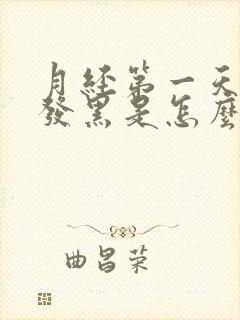 月经第一天
發黑是怎麼
曲昌荣